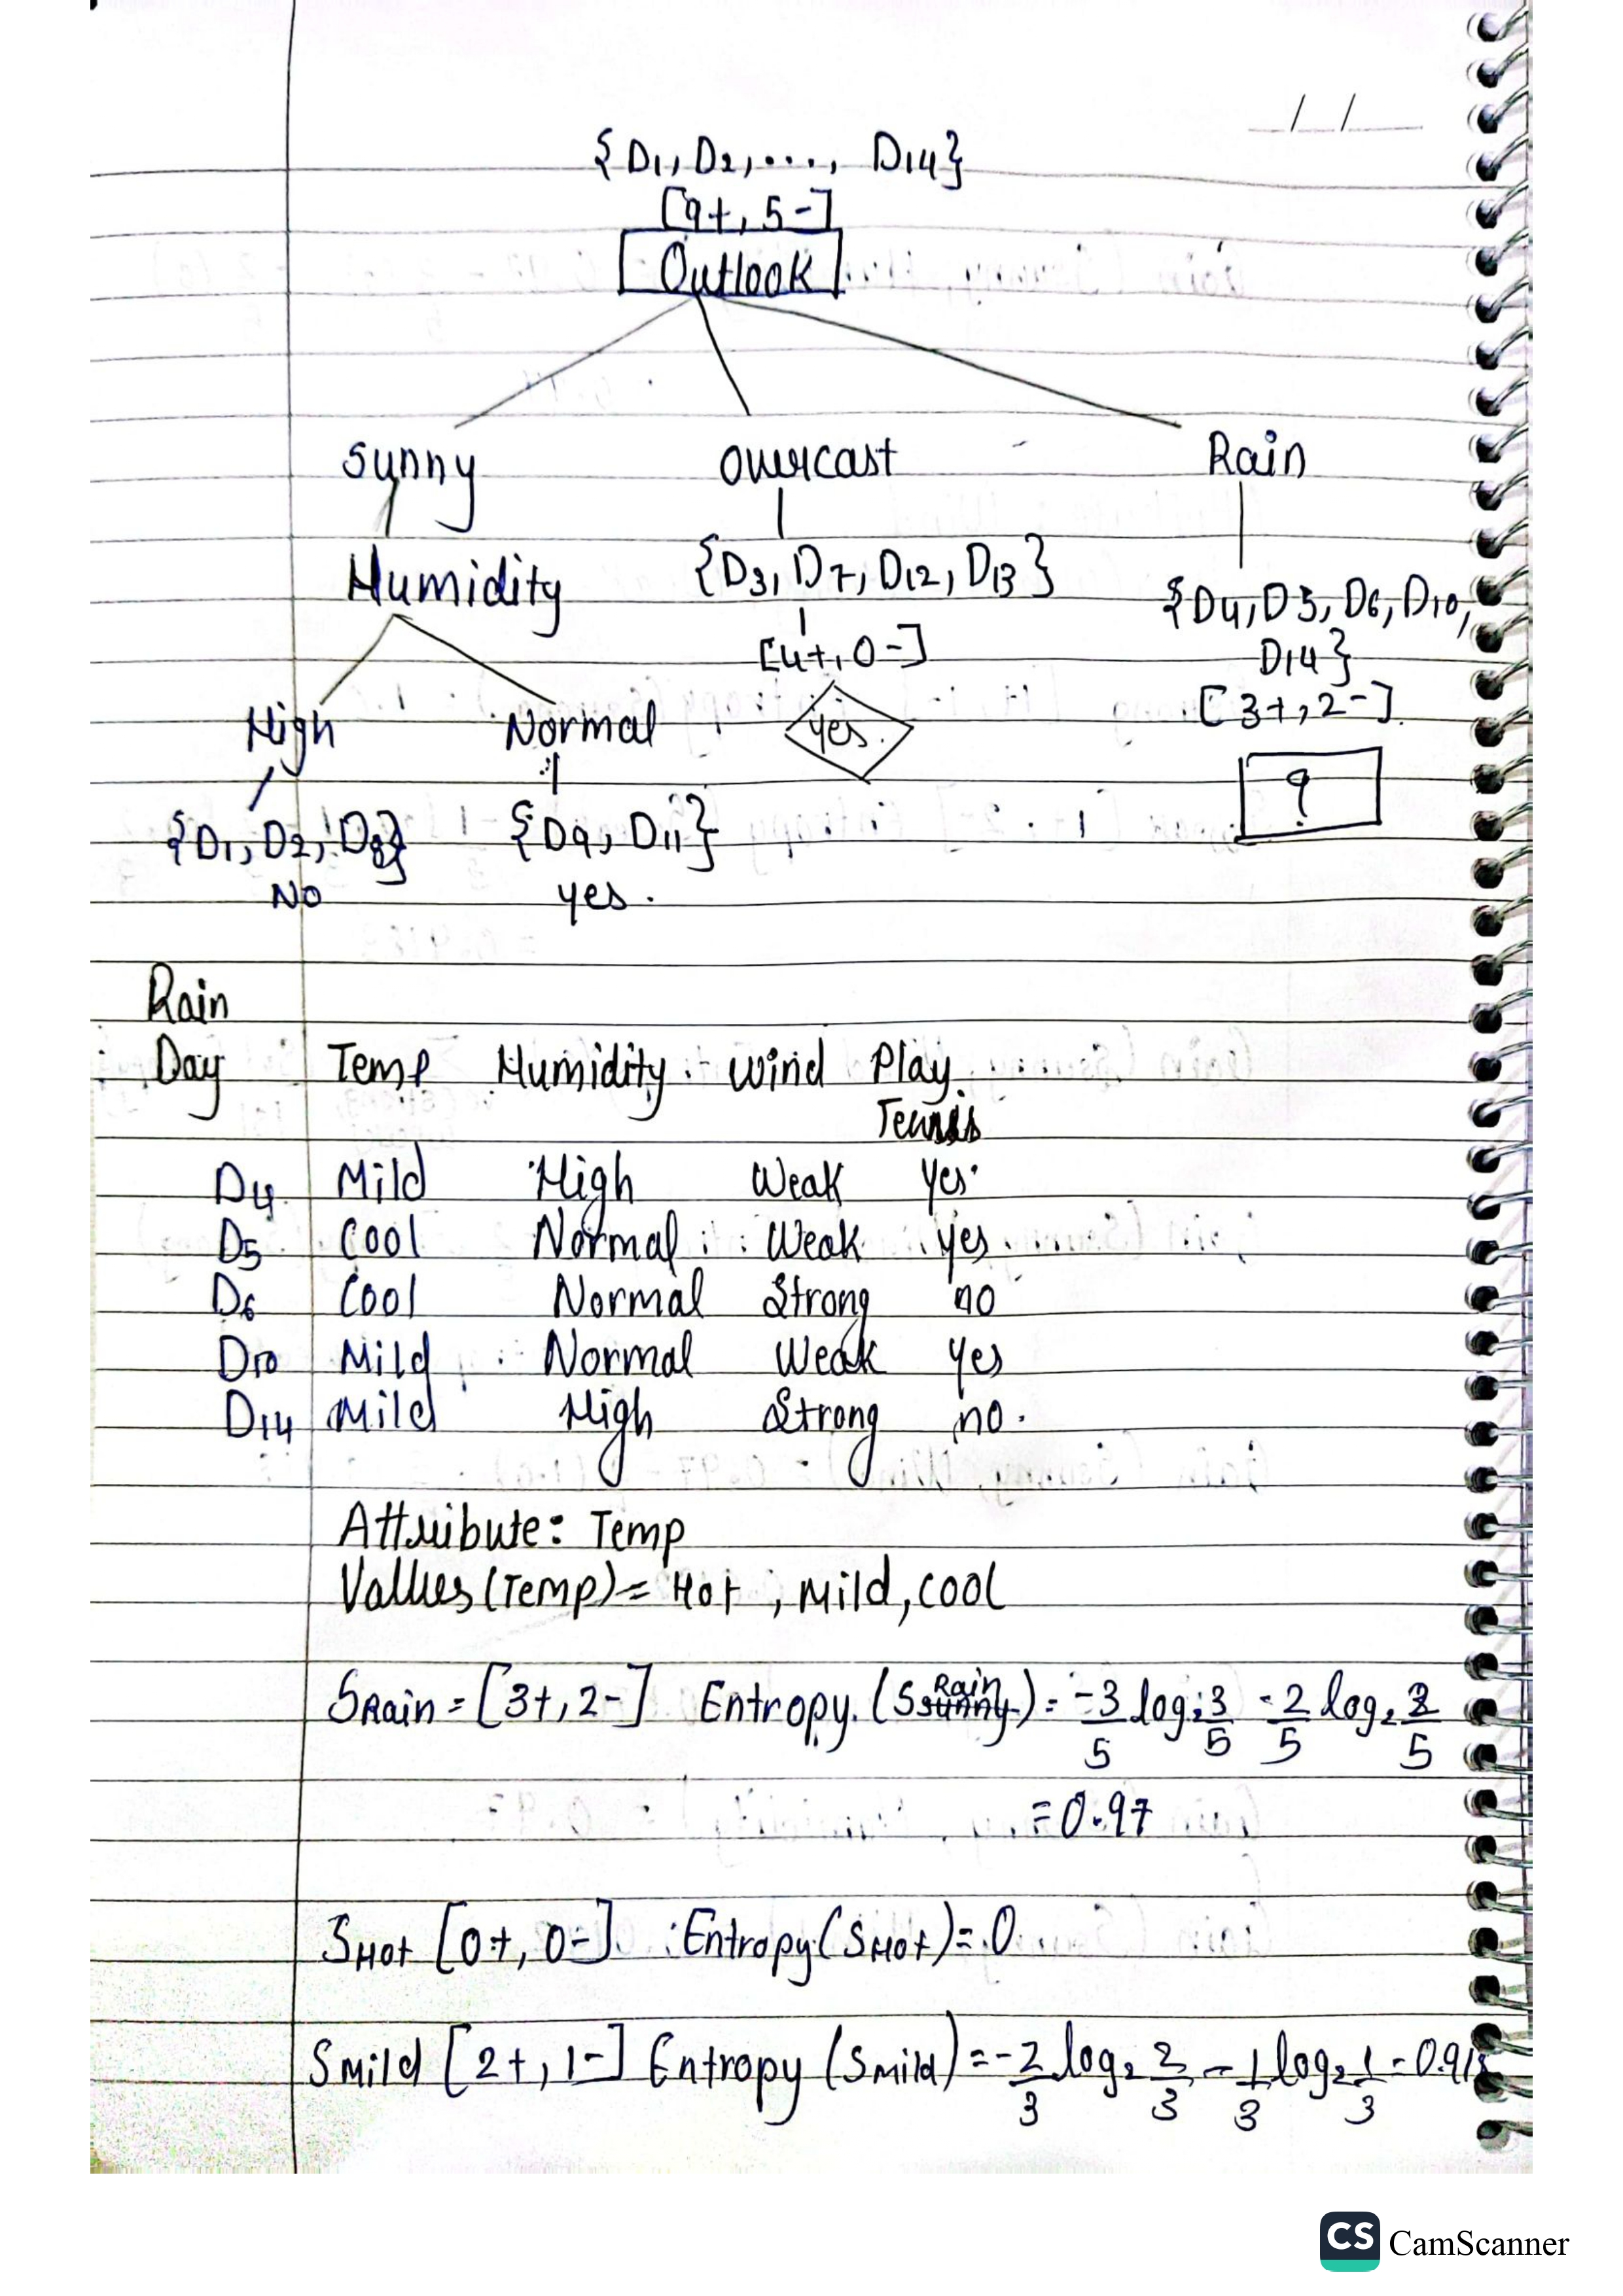 __/__/____
{D1, D2, ...., D14}
[9+, 5-]
Outlook
Sunny Overcast Rain
Humidity {D3, D7, D12, D13} {D4, D5, D6, D10,
[4+, 0-] D14}
High Normal yes. [3+, 2-].
?
{D1, D2, D8} {D9, D11}
NO yes.
Rain
Day Temp Humidity Wind Play
Tennis
D4 Mild High Weak yes
D5 Cool Normal Weak yes
D6 Cool Normal Strong no
D10 Mild Normal Weak yes
D14 Mild High Strong no.
Attribute: Temp
Values (Temp) = Hot, Mild, Cool
SRain = [3+, 2-] Entropy. (SRain) = -3/5 log2 3/5 - 2/5 log2 2/5
= 0.97
SHot [0+, 0-] Entropy (SHot) = 0
SMild [2+, 1-] Entropy (SMild) = -2/3 log2 2/3 - 1/3 log2 1/3 = 0.918
CS CamScanner